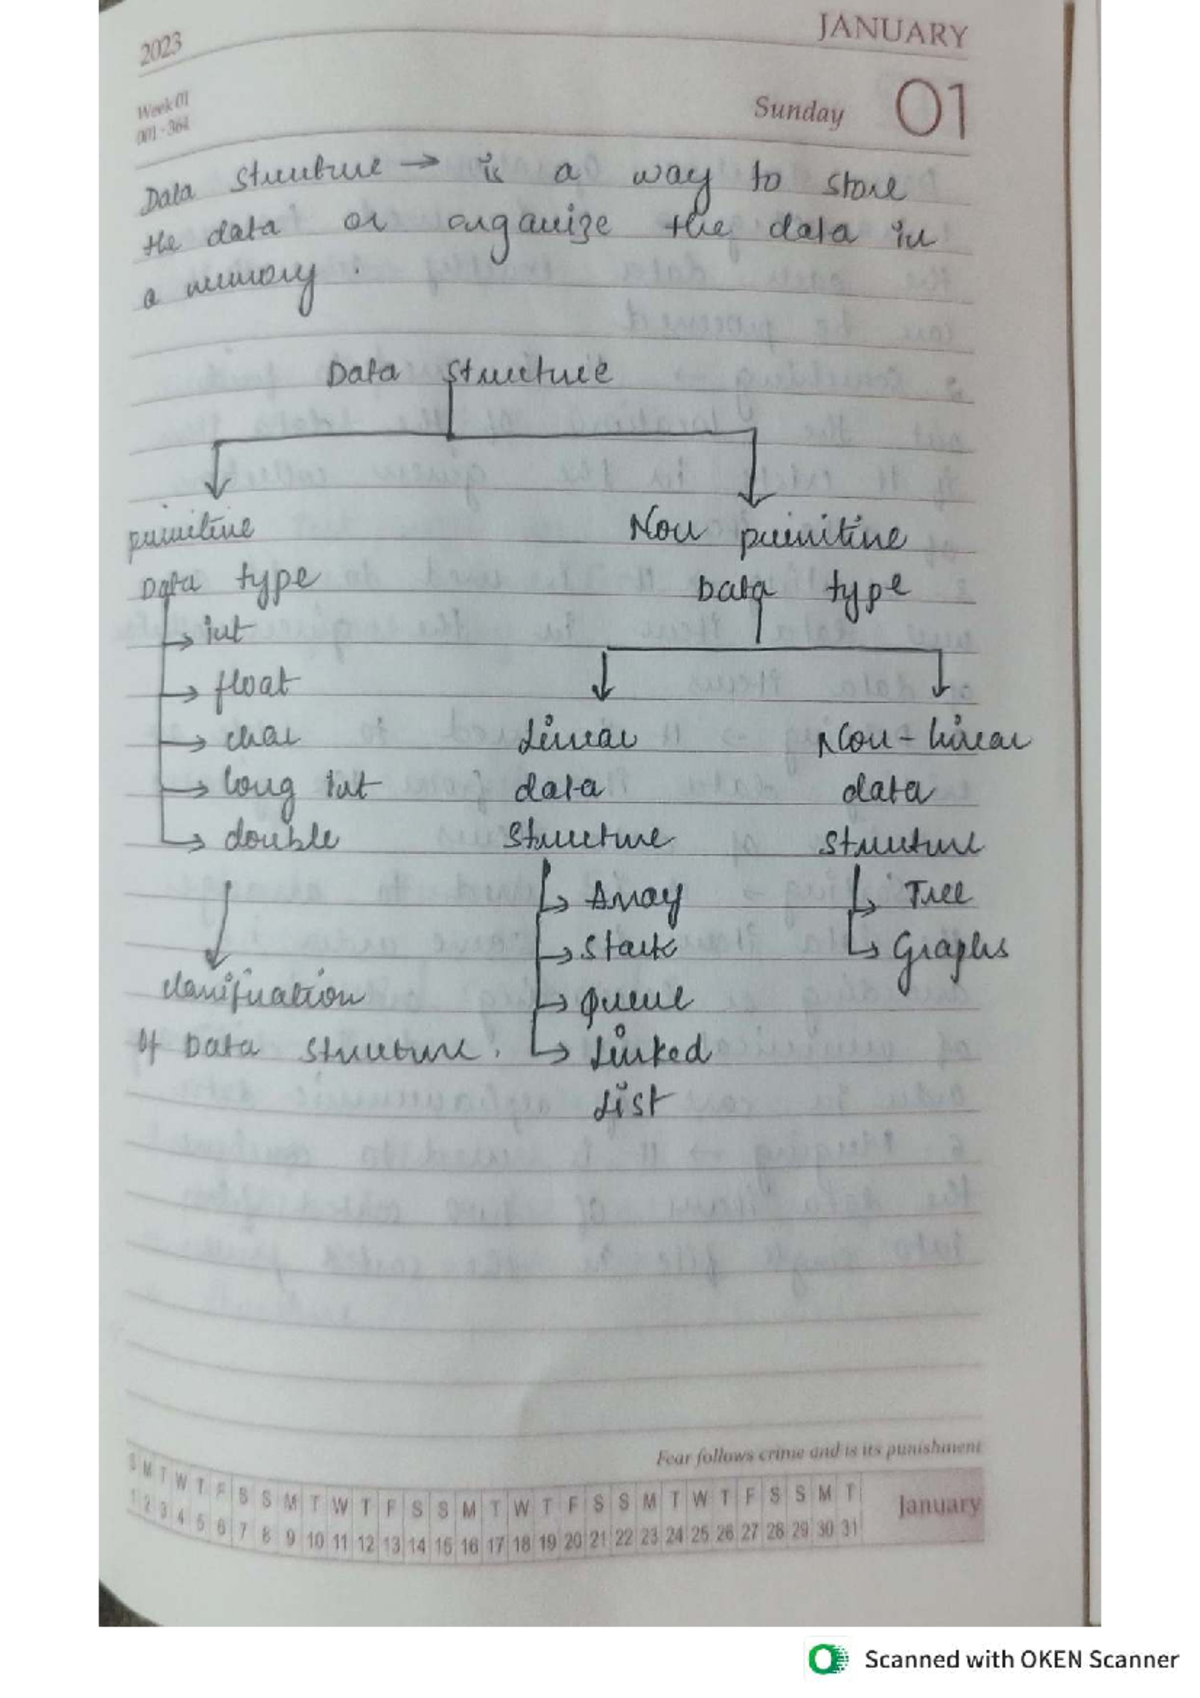 2023
JANUARY
Week 01
001-364
Sunday 01
Data structure → is a way to store
the data or organize the data in
a memory.
Data structure
primitive
Data type
→ int
→ float
→ char
→ long int
→ double
Non primitive
Data type
Linear
data
structure
→ Array
→ Stack
→ Queue
→ Linked
List
Non-linear
data
structure
→ Tree
→ Graphs
classification
of Data structure.
Fear follows crime and is its punishment
S M T W T F S S M T W T F S S M T W T F S S M T W T F S S M T
1 2 3 4 5 6 7 8 9 10 11 12 13 14 15 16 17 18 19 20 21 22 23 24 25 26 27 28 29 30 31
January
Scanned with OKEN Scanner